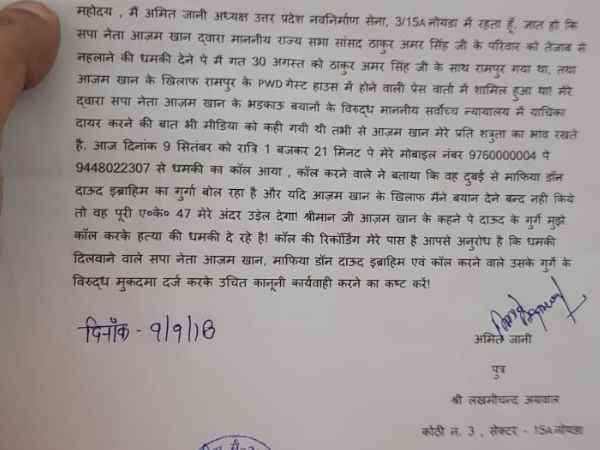 महोदय , मैं अमित जानी अध्यक्ष उत्तर प्रदेश नवनिर्माण सेना, 3/15A नोयडा में रहता हूँ, ज्ञात हो कि
सपा नेता आज़म खान द्वारा माननीय राज्य सभा सांसद ठाकुर अमर सिंह जी के परिवार को तेजाब से
नहलाने की धमकी देने पे मैं गत 30 अगस्त को ठाकुर अमर सिंह जी के साथ रामपुर गया था, तथा
आज़म खान के खिलाफ रामपुर के PWD गेस्ट हाउस में होने वाली प्रेस वार्ता में शामिल हुआ था! मेरे
द्वारा सपा नेता आज़म खान के भड़काऊ बयानों के विरुद्ध माननीय सर्वोच्च न्यायालय में याचिका
दायर करने की बात भी मीडिया को कही गयी थी तभी से आज़म खान मेरे प्रति शत्रुता का भाव रखते
है, आज दिनांक 9 सितंबर को रात्रि 1 बजकर 21 मिनट पे मेरे मोबाइल नंबर 9760000004 पे
9448022307 से धमकी का कॉल आया , कॉल करने वाले ने बताया कि वह दुबई से माफिया डॉन
दाऊद इब्राहिम का गुर्गा बोल रहा है और यदि आज़म खान के खिलाफ मैंने बयान देने बन्द नही किये
तो वह पूरी ए०के० 47 मेरे अंदर उड़ेल देगा! श्रीमान जी आज़म खान के कहने पे दाऊद के गुर्गे मुझे
कॉल करके हत्या की धमकी दे रहे है! कॉल की रिकॉर्डिंग मेरे पास है आपसे अनुरोध है कि धमकी
दिलवाने वाले सपा नेता आज़म खान, माफिया डॉन दाऊद इब्राहिम एवं कॉल करने वाले उसके गुर्गे के
विरुद्ध मुकदमा दर्ज करके उचित कानूनी कार्यवाही करने का कष्ट करें!
दिनाँक - 9/9/18
अमित जानी
पुत्र
श्री लखमीचन्द अग्रवाल
कोठी न. 3 , सेक्टर - 15A नोयडा